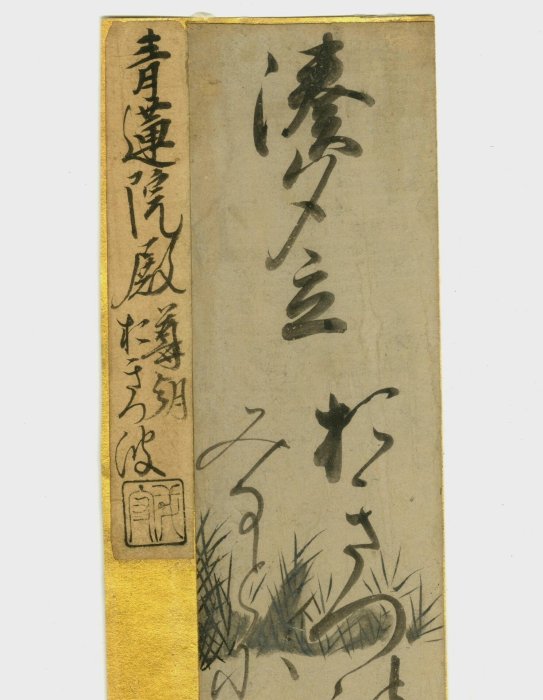 湊夕立
おきつ
みなとに
青蓮院殿尊朝
おきつ波